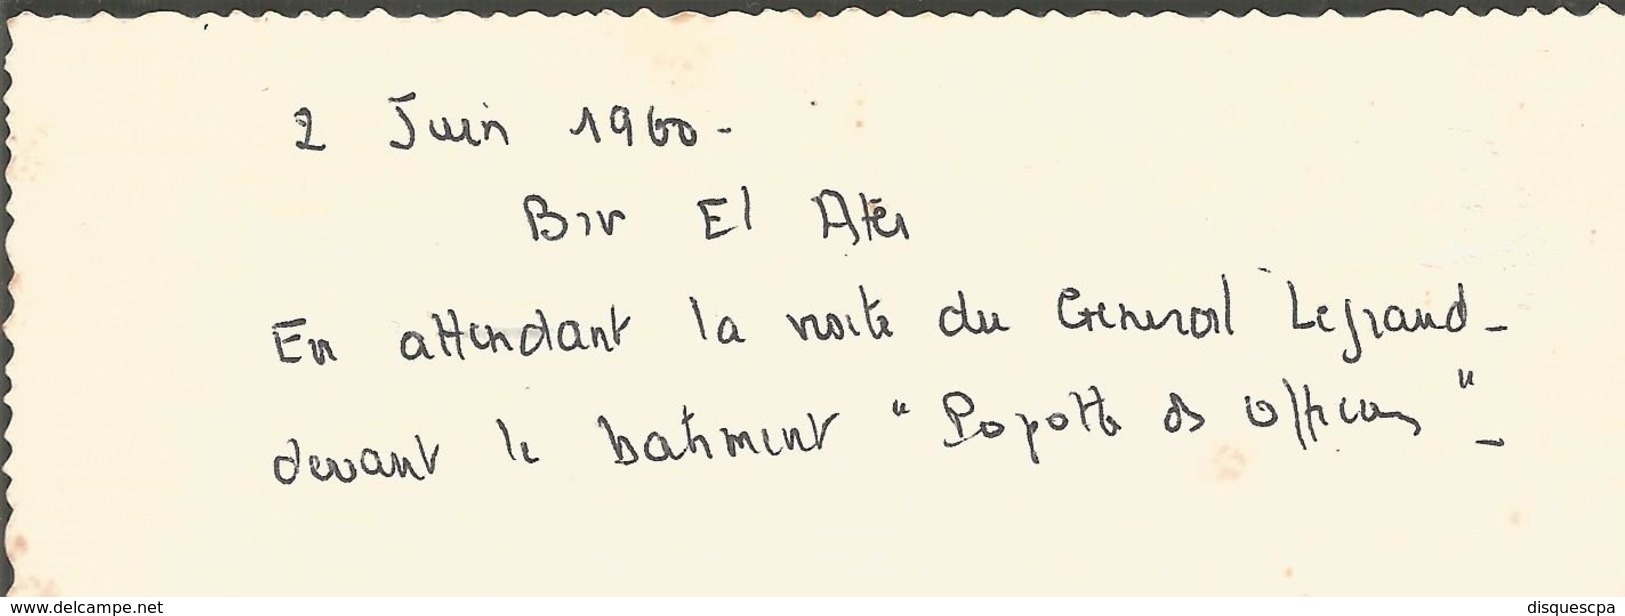 2 Juin 1960-
Bir El Ater
En attendant la visite du General Legrand-
devant le batiment "Popotte des Officiers"-
www.delcampe.net
disquescpa